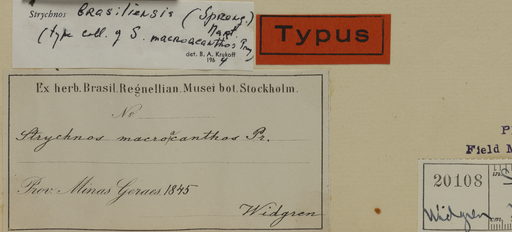 Strychnos Brasiliensis (Spreng.)
Mart.
(type coll. of S. macroacanthos Prg)
det. B. A. Krukoff
1964
Typus
Ex herb. Brasil. Regnellian. Musei bot. Stockholm.
No
Strychnos macroacanthos Pr.
Prov. Minas Geraes. 1845
Widgren
P
Field M
20108
Widgren